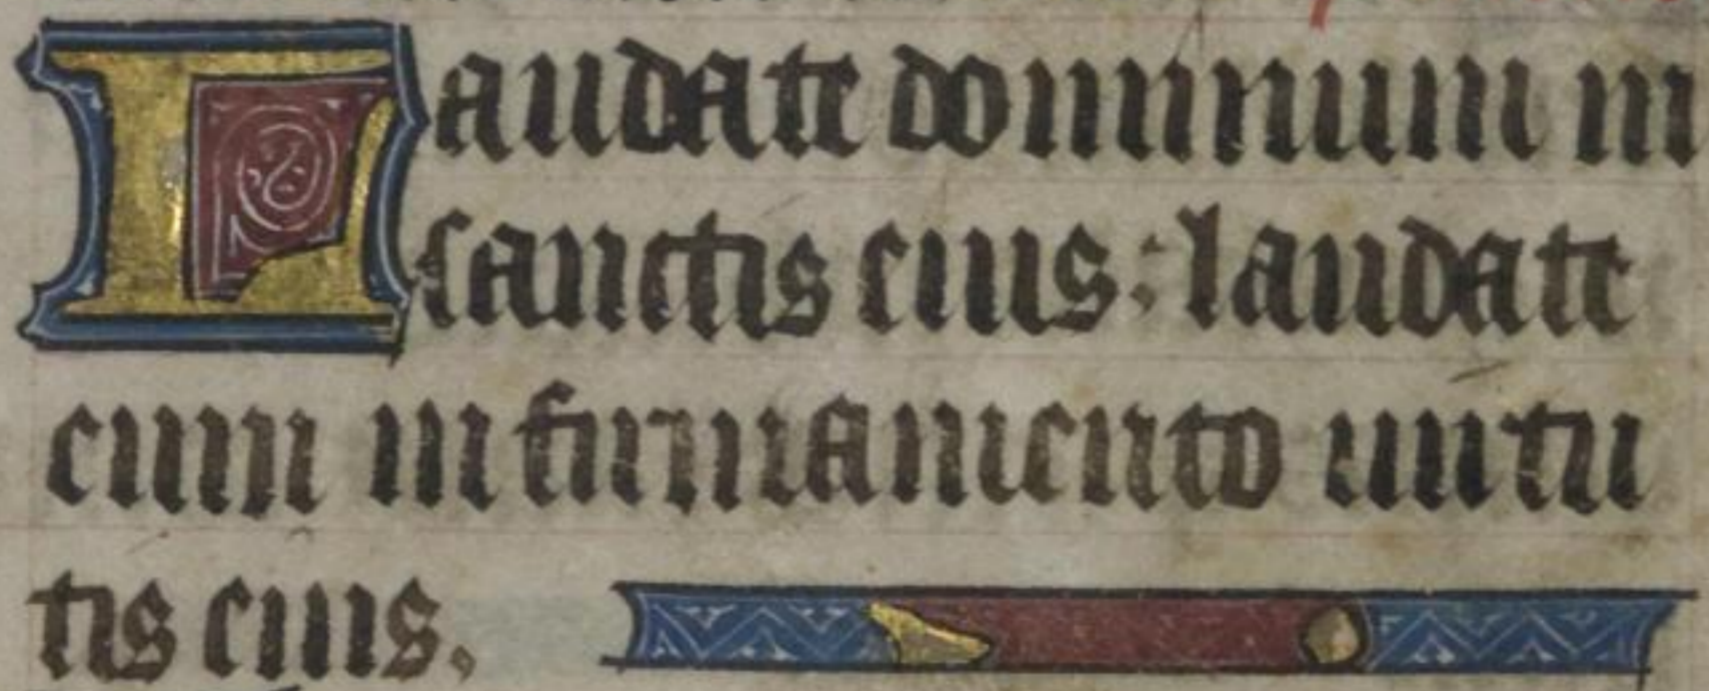 Laudate dominum in
sanctis eius: laudate
eum in firmamento uirtu
tis eius.